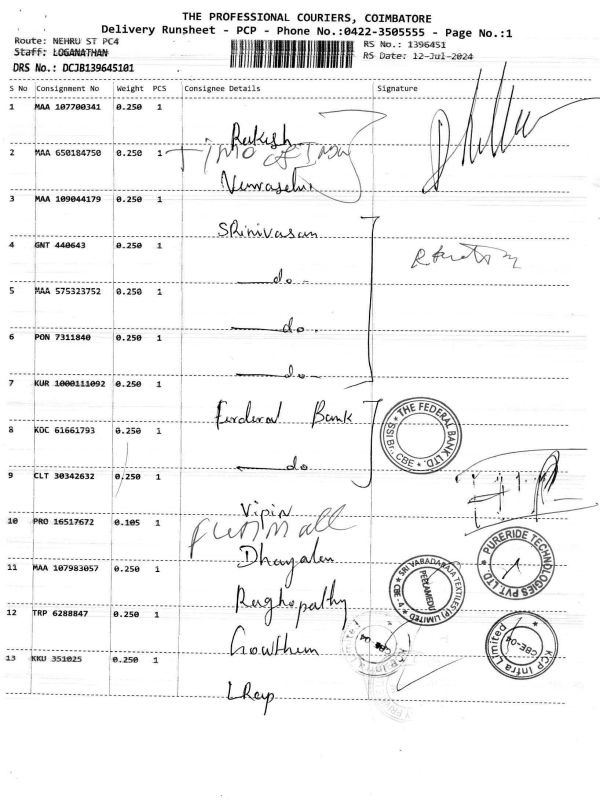 THE PROFESSIONAL COURIERS, COIMBATORE
Delivery Runsheet - PCP - Phone No.:0422-3505555 - Page No.:1
Route: NEHRU ST PC4
RS No.: 1396451
Staff: LOGANATHAN
RS Date: 12-Jul-2024
DRS No.: DCJB139645101
S No Consignment No Weight PCS Consignee Details Signature
1 MAA 107700341 0.250 1
Rakesh
2 MAA 650184750 0.250 1
3 MAA 109044179 0.250 1
SRinivasan
4 GNT 440643 0.250 1
do
5 MAA 575323752 0.250 1
do
6 PON 7311840 0.250 1
do
7 KUR 1000111092 0.250 1
Ferderal Bank
THE FEDERAL BANK LTD.
CBE
8 KOC 61661793 0.250 1
do
9 CLT 30342632 0.250 1
Vipin
10 PRO 16517672 0.105 1
Dhayalan
PURERIDE TECHNOLOGIES PVT. LTD.
11 MAA 107983057 0.250 1
SRI VARADARAJA TEXTILES (P) LIMITED
PEELAMEDU
CBE-4
Raghopathy
12 TRP 6288847 0.250 1
Gowthem
KCP Infra Limited
CBE-04
13 KKU 351025 0.250 1